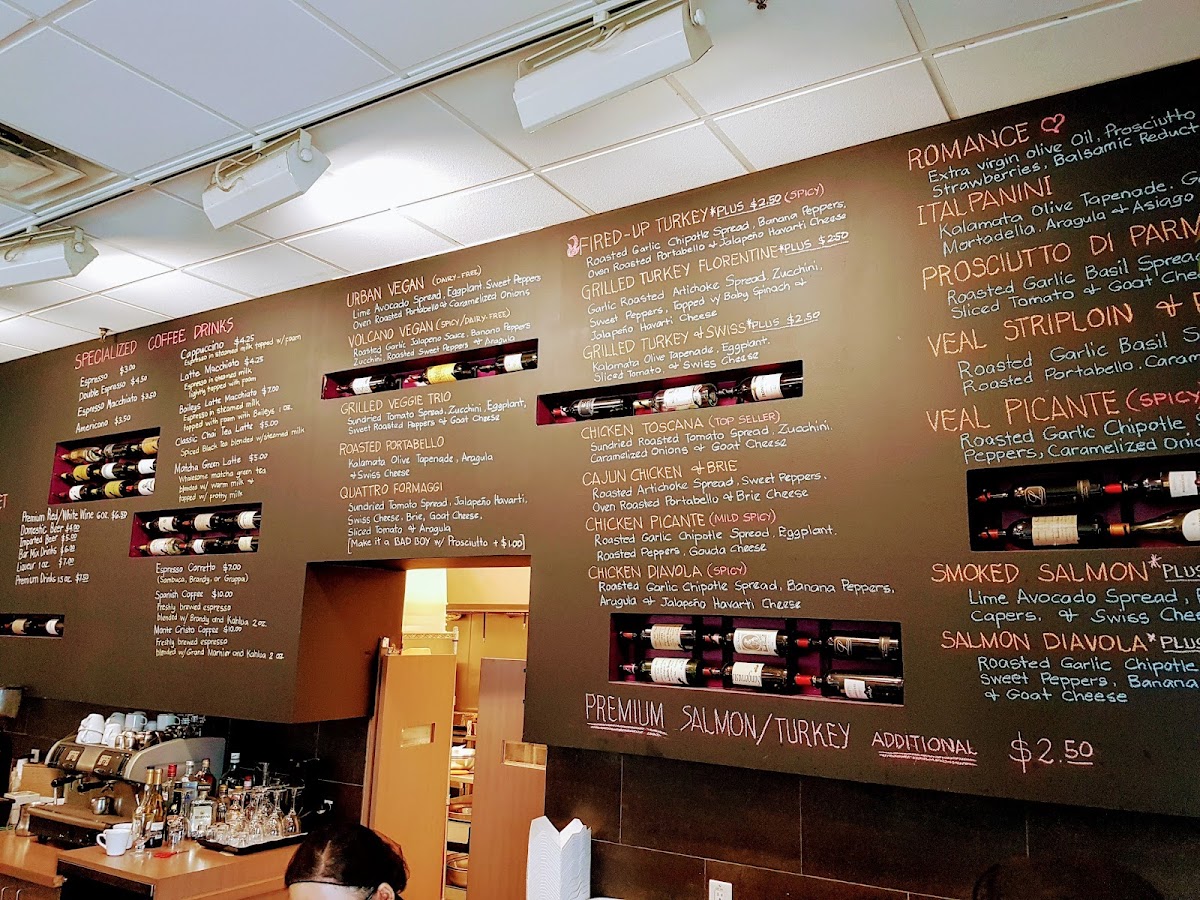 SPECIALIZED COFFEE DRINKS
Espresso $3.00
Double Espresso $4.50
Espresso Macchiato $3.50
Americano $3.50
Cappuccino $4.25
Espresso in steamed milk topped w/foam
Latte Macchiato $4.25
Espresso in steamed milk
lightly topped with foam
Baileys Latte Macchiato $7.00
Espresso in steamed milk
topped with foam with Baileys 1 oz.
Classic Chai Tea Latte $5.00
Spiced Black Tea blended w/steamed milk
Matcha Green Latte $5.00
Wholesome matcha green tea
blended w/ warm milk &
topped w/ frothy milk
ET
Premium Red/White Wine 6 oz.
Domestic Beer
Imported Beer
Bar Mix Drinks
Liqueur 1 oz
Premium Drinks 1.5 oz.
Espresso Corretto $7.00
(Sambuca, Brandy, or Grappa)
Spanish Coffee $10.00
Freshly brewed espresso
blended w/ Brandy and Kahlua 2 oz.
Monte Cristo Coffee $10.00
Freshly brewed espresso
blended w/Grand Marnier and Kahlua 2 oz
URBAN VEGAN (DAIRY-FREE)
Lime Avocado Spread, Eggplant, Sweet Peppers
Oven Roasted Portabello & Caramelized Onions
VOLCANO VEGAN (SPICY/DAIRY-FREE)
Roasted Garlic Jalapeño Sauce, Banana Peppers
Zucchini, Roasted Sweet Peppers & Aragula
GRILLED VEGGIE TRIO
Sundried Tomato Spread, Zucchini, Eggplant,
Sweet Roasted Peppers & Goat Cheese
ROASTED PORTABELLO
Kalamata Olive Tapenade, Aragula
& Swiss Cheese
QUATTRO FORMAGGI
Sundried Tomato Spread, Jalapeño Havarti,
Swiss Cheese, Brie, Goat Cheese,
Sliced Tomato & Aragula
[Make it a BAD BOY w/ Prosciutto + $1.00]
FIRED-UP TURKEY *PLUS $2.50 (SPICY)
Roasted Garlic Chipotle Spread, Banana Peppers,
Oven Roasted Portabello & Jalapeño Havarti Cheese
GRILLED TURKEY FLORENTINE *PLUS $2.50
Garlic Roasted Artichoke Spread, Zucchini,
Sweet Peppers, Topped w/ Baby Spinach &
Jalapeño Havarti Cheese
GRILLED TURKEY & SWISS *PLUS $2.50
Kalamata Olive Tapenade, Eggplant,
Sliced Tomato & Swiss Cheese
CHICKEN TOSCANA (TOP SELLER)
Sundried Roasted Tomato Spread, Zucchini,
Caramelized Onions & Goat Cheese
CAJUN CHICKEN & BRIE
Roasted Artichoke Spread, Sweet Peppers,
Oven Roasted Portabello & Brie Cheese
CHICKEN PICANTE (MILD SPICY)
Roasted Garlic Chipotle Spread, Eggplant,
Roasted Peppers, Gouda Cheese
CHICKEN DIAVOLA (SPICY)
Roasted Garlic Chipotle Spread, Banana Peppers,
Aragula & Jalapeño Havarti Cheese
PREMIUM SALMON/TURKEY ADDITIONAL $2.50
ROMANCE
Extra virgin olive Oil, Prosciutto
Strawberries, Balsamic Reduct
ITALPANINI
Kalamata Olive Tapenade, G
Mortadella, Aragula & Asiago
PROSCIUTTO DI PARM
Roasted Garlic Basil Sprea
Sliced Tomato & Goat Che
VEAL STRIPLOIN &
Roasted Garlic Basil S
Roasted Portabello, Caram
VEAL PICANTE (SPICY
Roasted Garlic Chipotle
Peppers, Caramelized Onio
SMOKED SALMON *PLUS
Lime Avocado Spread,
Capers, & Swiss Che
SALMON DIAVOLA *PLUS
Roasted Garlic Chipotle
Sweet Peppers, Banana
& Goat Cheese